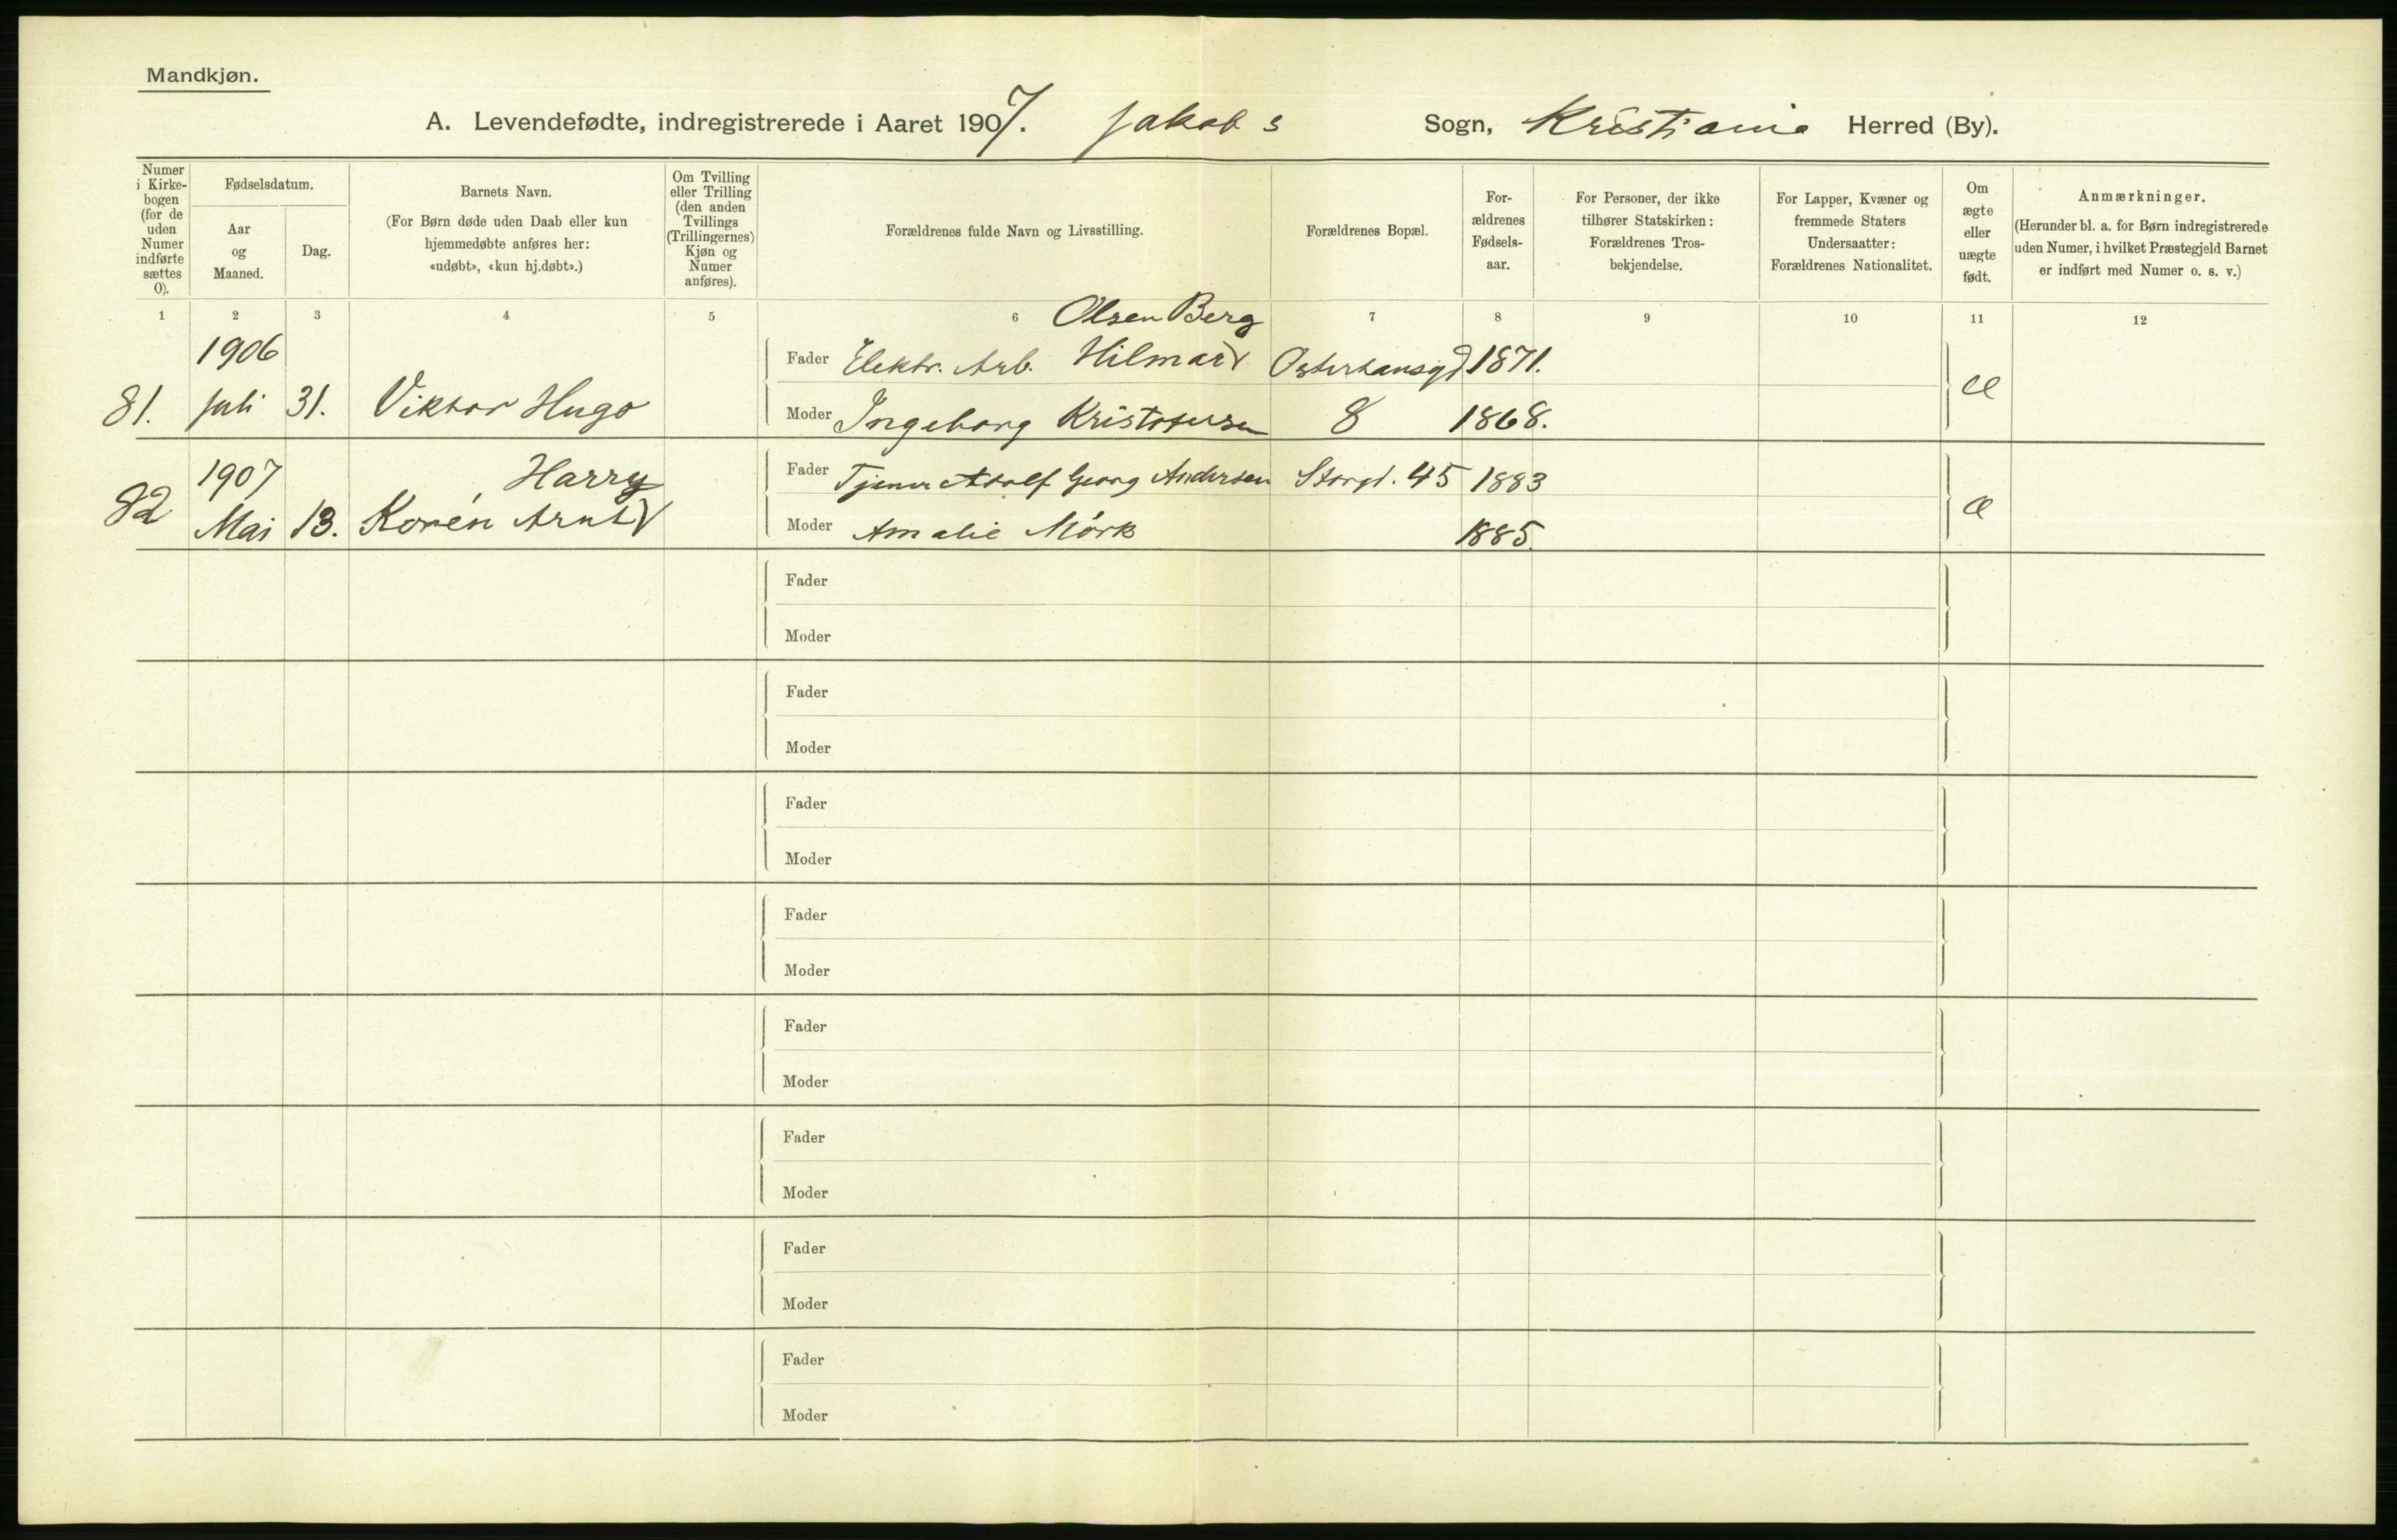 Mandkjøn.
A. Levendefødte, indregistrerede i Aaret 1907. Jakobs Sogn, Kristiania Herred (By).
Numer i Kirke- bogen (for de uden Numer indførte sættes 0).
Fødselsdatum.
Aar og Maaned.
Dag.
Barnets Navn.
(For Børn døde uden Daab eller kun
hjemmedøbte anføres her:
«udøbt», «kun hj.døbt».)
Om Tvilling eller Trilling (den anden Tvillings (Trillingernes) Kjøn og Numer anføres).
Forældrenes fulde Navn og Livsstilling.
Forældrenes Bopæl.
For- ældrenes Fødsels- aar.
For Personer, der ikke tilhører Statskirken: Forældrenes Tros- bekjendelse.
For Lapper, Kvæner og fremmede Staters Undersaatter: Forældrenes Nationalitet.
Om ægte eller uægte født.
Anmærkninger.
(Herunder bl. a. for Børn indregistrerede
uden Numer, i hvilket Præstegjeld Barnet
er indført med Numer o. s. v.)
1 2 3 4 5 6 7 8 9 10 11 12
Olsen Berg
1906 Fader Elektr. Arb. Hilmar Osterhausgd 1871.
81. Juli 31. Viktor Hugo Moder Ingeborg Kristofersen 8 1868. æ
1907 Harry Fader Tjener Adolf Georg Andersen Storgd. 45 1883
82 Mai 13. Korén Arnt Moder Amalie Mörk 1885. æ
Fader
Moder
Fader
Moder
Fader
Moder
Fader
Moder
Fader
Moder
Fader
Moder
Fader
Moder
Fader
Moder